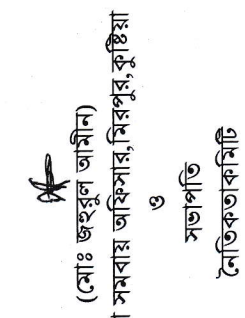 (মোঃ জহুরুল আমীন)
সমবায় অফিসার,মিরপুর,কুষ্টিয়া
ও
সভাপতি
নৈতিকতাকমিটি